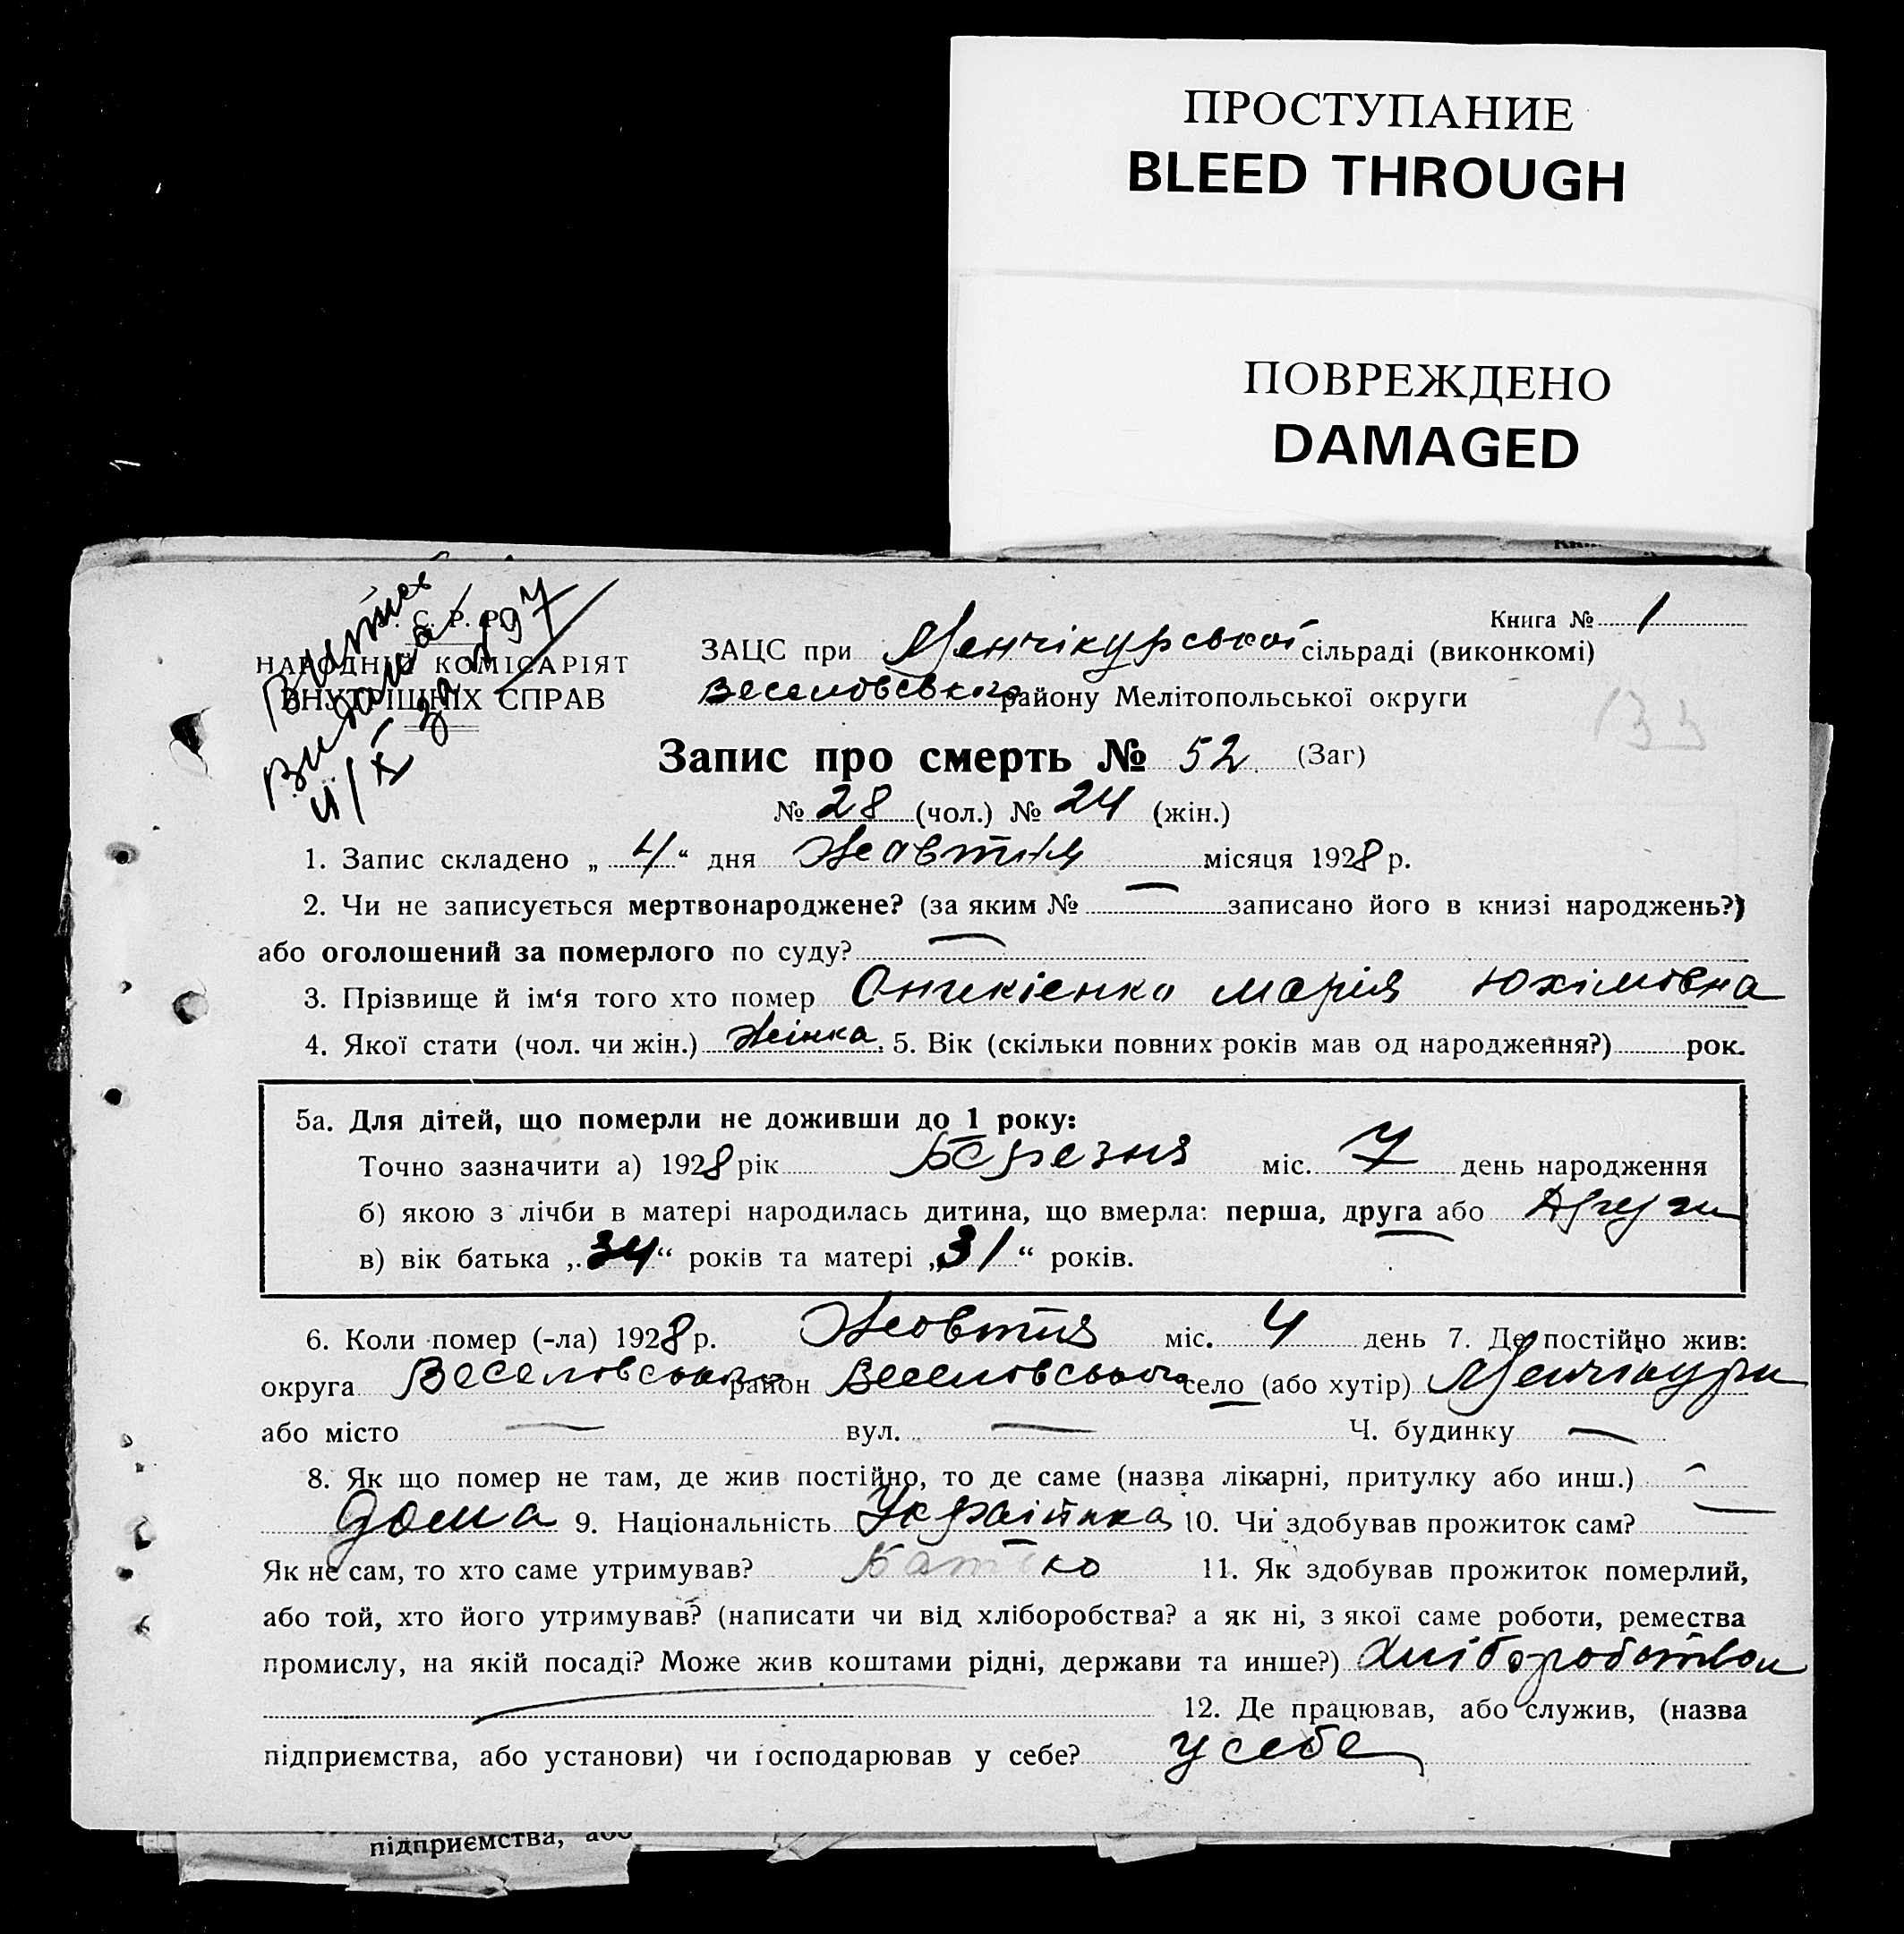 ПРОСТУПАНИЕ
BLEED THROUGH
ПОВРЕЖДЕНО
DAMAGED
С. Р. Р.
НАРОДНІЙ КОМІСАРІЯТ
ВНУТРІШНІХ СПРАВ
Книга № 1
ЗАЦС при Менчікурської сільраді (виконкомі)
Веселовського району Мелітопольської округи
133
Запис про смерть № 52 (Заг)
№ 28 (чол.) № 24 (жін.)
1. Запис складено „ 4 “ дня Жовтня місяця 1928 р.
2. Чи не записується мертвонароджене? (за яким № — записано його в книзі народжень?)
або оголошений за померлого по суду? —
3. Прізвище й ім‘я того хто помер Марія Юхімовна
4. Якої стати (чол. чи жін.) Жінка. 5. Вік (скільки повних років мав од народження?) рок.
5а. Для дітей, що померли не доживши до 1 року:
Точно зазначити а) 1928 рік Березня міс. 7 день народження
б) якою з лічби в матері народилась дитина, що вмерла: перша, друга або
в) вік батька „ 34 “ років та матері „ 31 “ років.
6. Коли помер (-ла) 1928 р. Жовтня міс. 4 день 7. Де постійно жив:
округа Веселовського район Веселовського село (або хутір) Менчікури
або місто — вул. — Ч. будинку —
8. Як що помер не там, де жив постійно, то де саме (назва лікарні, притулку або инш.) —
дома 9. Національність Українка 10. Чи здобував прожиток сам? —
Як не сам, то хто саме утримував? Батько 11. Як здобував прожиток померлий,
або той, хто його утримував? (написати чи від хліборобства? а як ні, з якої саме роботи, ремества
промислу, на якій посаді? Може жив коштами рідні, держави та инше?) Хліборобством
12. Де працював, або служив, (назва
підприємства, або установи) чи господарював у себе? у себе
підприємства, або